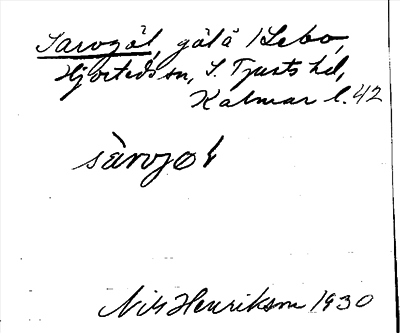 Sarvgöl, göl å Lebo,
Hjorteds sn, S. Tjusts hd,
Kalmar l. 42
sàrvjøl
Nils Henrikson 1930